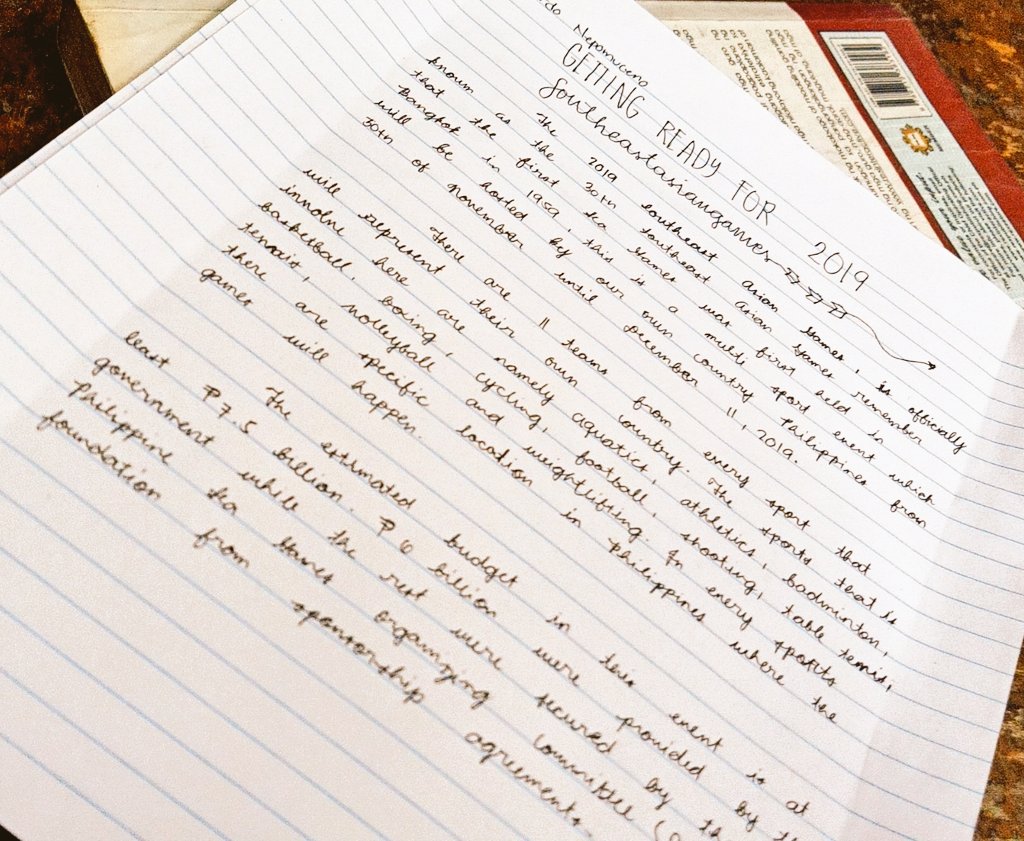 Nepomuceno
GETTING READY FOR 2019
Southeastasiangames
The 2019 southeast asian games, is officially
known as the 30th southeast Asian games, remember
that the first sea games was first held in
Bangkok in 1959, this is a multi sport event which
will be hosted by our own country Philippines from
30th of November until December 11, 2019.
There are 11 teams from every sport that
will represent their own country. The sports that is
involve here are namely aquatics, athletics, badminton,
basketball, boxing, cycling, football, shooting, table tennis,
tennis, volleyball and weightlifting. In every sports
there are specific location in Philippines where the
games will happen.
The estimated budget in this event is at
least ₱7.5 billion. ₱6 billion were provided by
government while the rest were secured by
Philippine sea Games organizing committee
foundation from sponsorship agreements.